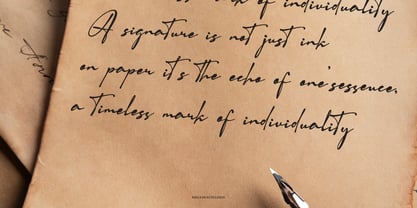 mark of individuality
A signature is not just ink
on paper it's the echo of one'sessence.
a timeless mark of individuality